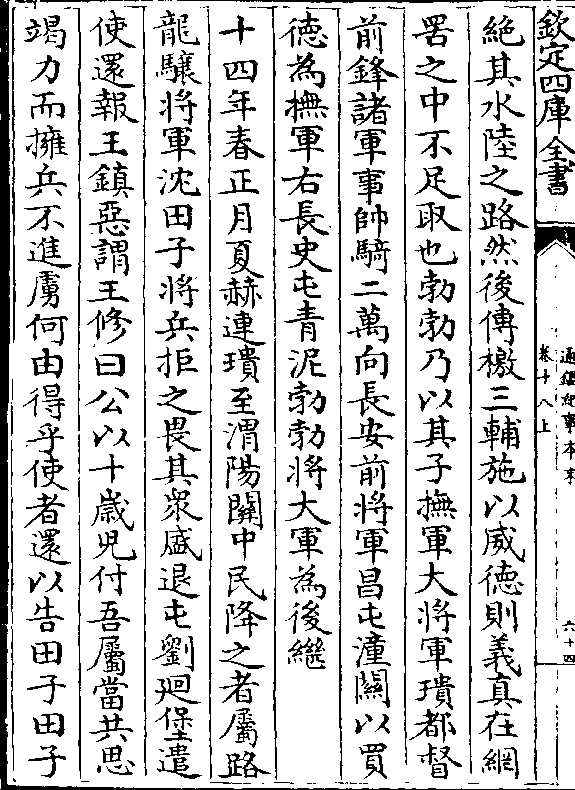 欽定四庫全書
通鑑紀事本末
卷十八上
六十四
絶其水陸之路然後傳檄三輔施以威德則義真在網
罟之中不足取也勃勃乃以其子撫軍大將軍璝都督
前鋒諸軍事帥騎二萬向長安前將軍昌屯潼關以買
德為撫軍右長史屯青泥勃勃將大軍為後繼
十四年春正月夏赫連璝至渭陽關中民降之者屬路
龍驤將軍沈田子將兵拒之畏其衆盛退屯劉廻堡遣
使還報王鎮惡謂王修曰公以十歲兒付吾屬當共思
竭力而擁兵不進虜何由得乎使者還以告田子田子